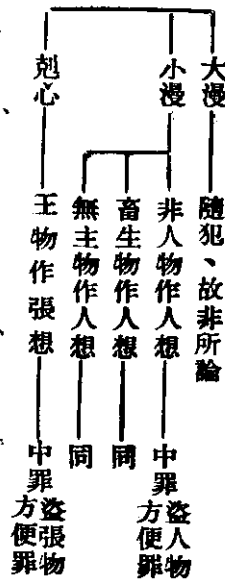 大漫
隨犯、故非所論
小漫
非人物作人想
中罪
盜人物
方便罪
畜生物作人想
同
無主物作人想
同
剋心
王物作張想
中罪
盜張物
方便罪